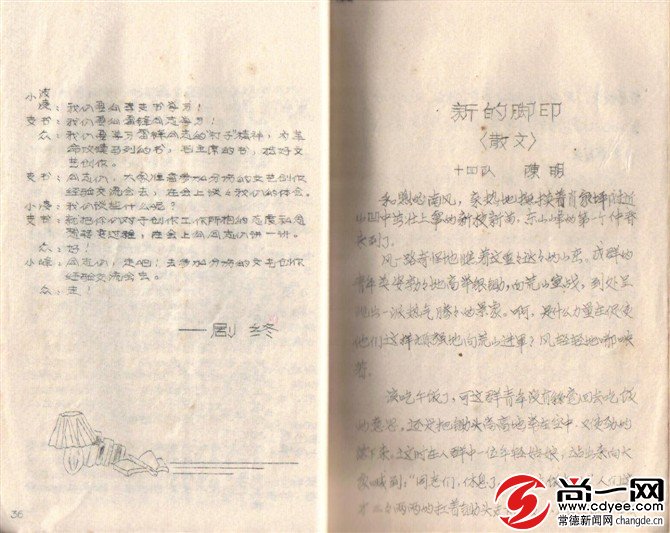 小凌：我们要向老支书学习！
支书：我们要向雷锋同志学习！
众：我们要学习雷锋同志的“钉子”精神，为革
命攻读马列的书，毛主席的书，搞好文
艺创作。
支书：同志们，大家准备参加分场的文艺创作
经验交流会去，在会上谈谈我们的体会。
小凌：我们谈些什么呢？
支书：就把你们对于创作工作所抱的态度和思
想转变过程，在会上向同志们讲一讲。
众：好！
小峰：同志们，走吧！去参加分场的文艺创作
经验交流会去。
众：走！
—剧 终
36
新的脚印
〈散文〉
十四队 陈明
和煦的南风，柔和地抚摸着肖家坪附近
山田中茁壮上翠的新枝新苗，东山峰的第一个仲春
来到了。
风一路奇怪地瞧着这重重迭迭的山峦，成群的
青年英姿勃勃地高举银锄，向荒山宣战，到处呈
现出一派热气腾腾的景象。啊，是什么力量在促使
他们这样顽强地向荒山进军？风轻轻地
着。
该吃午饭了，可这群青年没有丝毫回去吃饭
的意思，还是把锄头高高地举在空中，又使劲的
落下来，这时在人群中一位年轻姑娘，站出来向大
家喊到：“同志们，休息了
才三三两两的扛着锄头走
尚一网
www.cdyee.com
常德新闻网 changde.cn